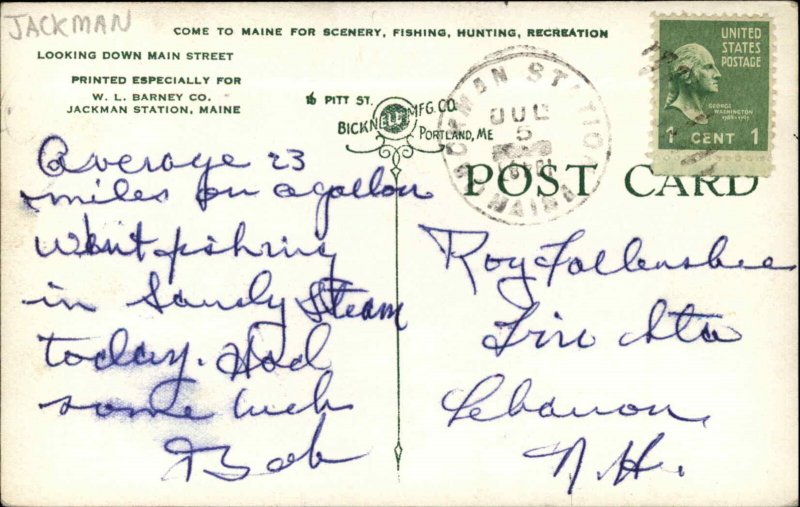 JACKMAN
COME TO MAINE FOR SCENERY, FISHING, HUNTING, RECREATION
LOOKING DOWN MAIN STREET
PRINTED ESPECIALLY FOR
W. L. BARNEY CO.
JACKMAN STATION, MAINE
PITT ST.
BICKNELL MFG. CO.
PORTLAND, ME
JACKMAN STATION
JUL
5
MAINE
UNITED
STATES
POSTAGE
GEORGE
WASHINGTON
1789-1797
1 CENT 1
POST CARD
Average 23
miles on a gallon
Went fishing
in Sandy Steam
today. Had
some luck
Bob
Roy Follensbee
Fire Sta
Lebanon,
N. H.